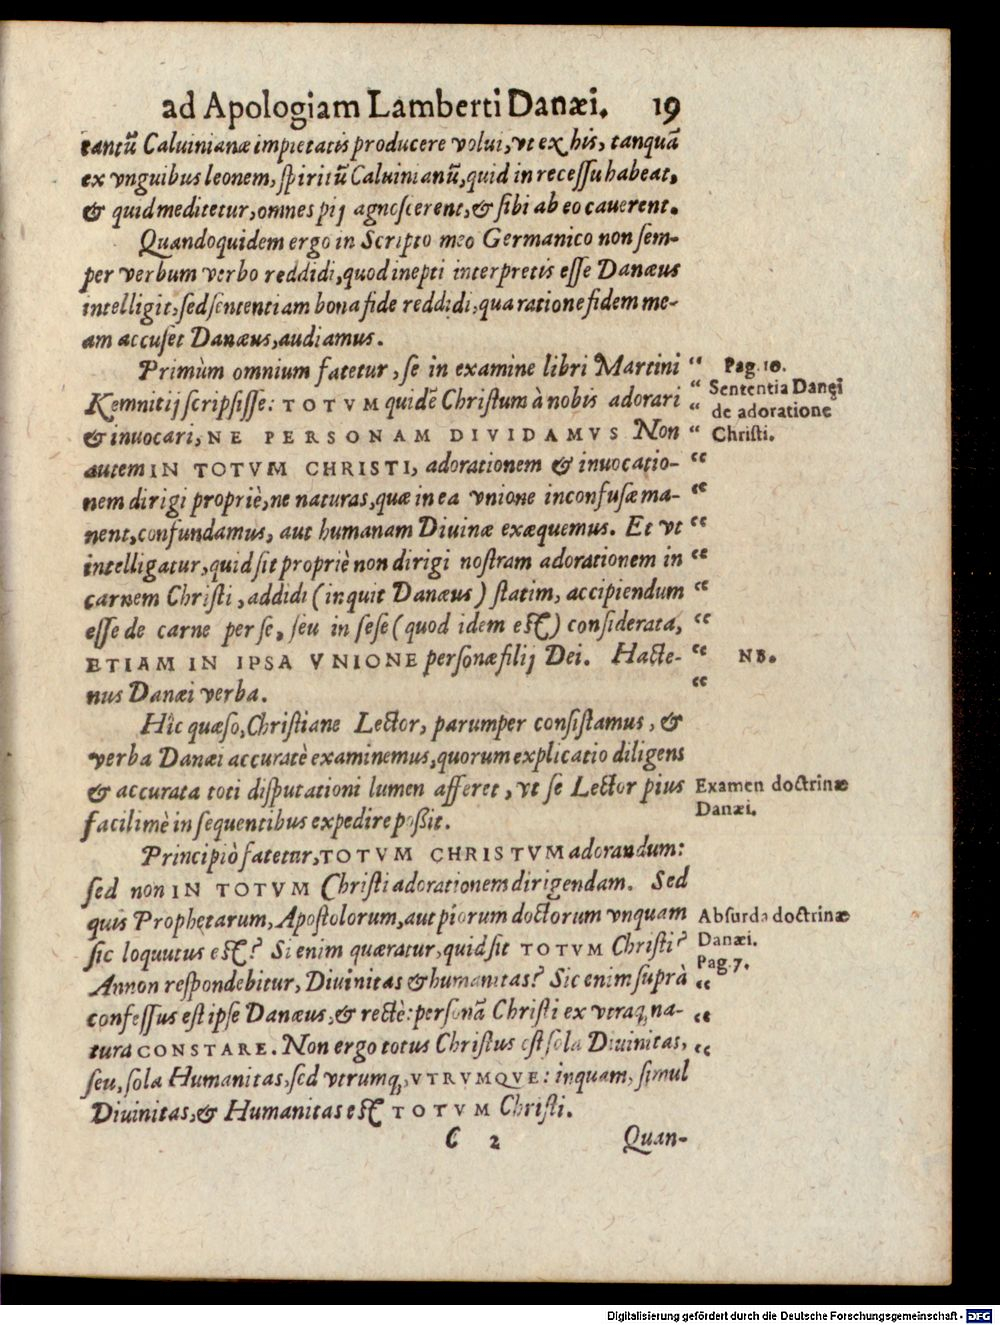 ad Apologiam Lamberti Danæi. 19
tantũ Caluinianæ impietatis producere volui, vt ex his, tanquã
ex vnguibus leonem, ſpiritũ Caluinianũ, quid in receſſu habeat,
& quid meditetur, omnes pij agnoſcerent, & ſibi ab eo cauerent.
Quandoquidem ergo in Scripto meo Germanico non ſem-
per verbum verbo reddidi, quod inepti interpretis eſſe Danæus
intelligit, ſed ſententiam bona fide reddidi, qua ratione fidem me-
am accuſet Danæus, audiamus.
Primùm omnium fatetur, ſe in examine libri Martini “ Pag. 10.
Kemnitij ſcripſiſſe: TOTVM quidẽ Chriſtum à nobis adorari “ Sententia Danęi
& inuocari, NE PERSONAM DIVIDAMVS Non “ de adoratione
autem IN TOTVM CHRISTI, adorationem & inuocatio- “ Chriſti.
nem dirigi propriè, ne naturas, quæ in ea vnione inconfuſæ ma- “
nent, confundamus, aut humanam Diuinæ exæquemus. Et vt “
intelligatur, quid ſit propriè non dirigi noſtram adorationem in “
carnem Chriſti, addidi (inquit Danæus) ſtatim, accipiendum “
eſſe de carne per ſe, ſeu in ſeſe (quod idem eſt) conſiderata, “
ETIAM IN IPSA VNIONE perſonæ filij Dei. Hacte- “ NB.
nus Danæi verba. “
Hîc quæſo, Chriſtiane Lector, parumper conſiſtamus, &
verba Danæi accuratè examinemus, quorum explicatio diligens
& accurata toti diſputationi lumen afferet, vt ſe Lector pius Examen doctrinæ
facilimè in ſequentibus expedire poßit. Danæi.
Principiò fatetur, TOTVM CHRISTVM adorandum:
ſed non IN TOTVM Chriſti adorationem dirigendam. Sed
quis Prophetarum, Apoſtolorum, aut piorum doctorum vnquam Abſurda doctrinæ
ſic loquutus eſt? Si enim quæratur, quid ſit TOTVM Chriſti? Danæi.
Annon reſpondebitur, Diuinitas & humanitas? Sic enim ſuprà Pag. 7. “
confeſſus eſt ipſe Danæus, & rectè: perſonã Chriſti ex vtraq; na- “
tura CONSTARE. Non ergo totus Chriſtus eſt ſola Diuinitas, “
ſeu, ſola Humanitas, ſed vtrumq;, VTRVMQVE: inquam, ſimul
Diuinitas, & Humanitas eſt TOTVM Chriſti.
C 2 Quan-
Digitalisierung gefördert durch die Deutsche Forschungsgemeinschaft - DFG